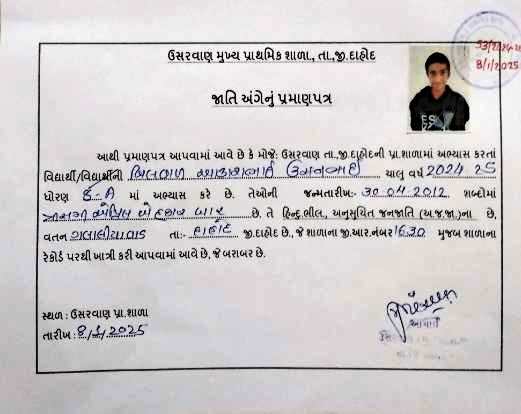 53/2024-25
8/1/2025
ઉસરવાણ મુખ્ય પ્રાથમિક શાળા, તા.,જી.દાહોદ
જાતિ અંગેનું પ્રમાણપત્ર
આથી પ્રમાણપત્ર આપવામાં આવે છે કે મોજે: ઉસરવાણ તા.,જી.દાહોદની પ્રા.શાળામાં અભ્યાસ કરતાં
વિદ્યાર્થી/વિદ્યાર્થીની બિલવાળ છગનભાઈ ચાલુ વર્ષ 2024 25
ધોરણ 8-A માં અભ્યાસ કરે છે. તેઓની જન્મતારીખ:- 30-04-2012 શબ્દોમાં
ત્રીસમી એપ્રિલ બે હજાર બાર છે. તે હિન્દુ ભીલ, અનુસુચિત જનજાતિ (અ.જ.જા.)ના છે,
વતન ગલાલીયાવાડ તા:- દાહોદ જી.દાહોદ છે., જે શાળાના જી.આર.નંબર 1630 મુજબ શાળાના
રેકોર્ડ પરથી ખાત્રી કરી આપવામાં આવે છે, જે બરાબર છે.
સ્થળ : ઉસરવાણ પ્રા.શાળા
તારીખ : 8/1/2025
આચાર્ય